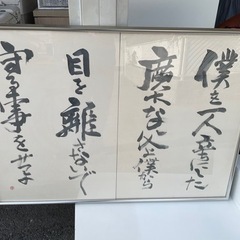 僕を一人立ちにした
廣大な父よ僕から
目を離さないで
守る事をせよ